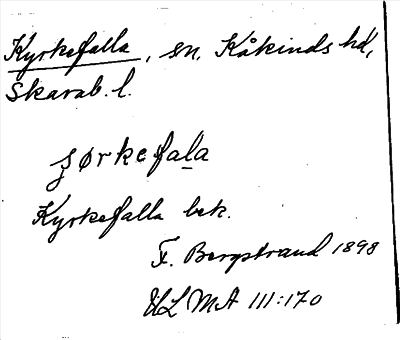 Kyrkefalla, sn, Kåkinds hd,
Skarab. l.
Kyrkefalla bek.
F. Bergstrand 1898
ULMA 111:170